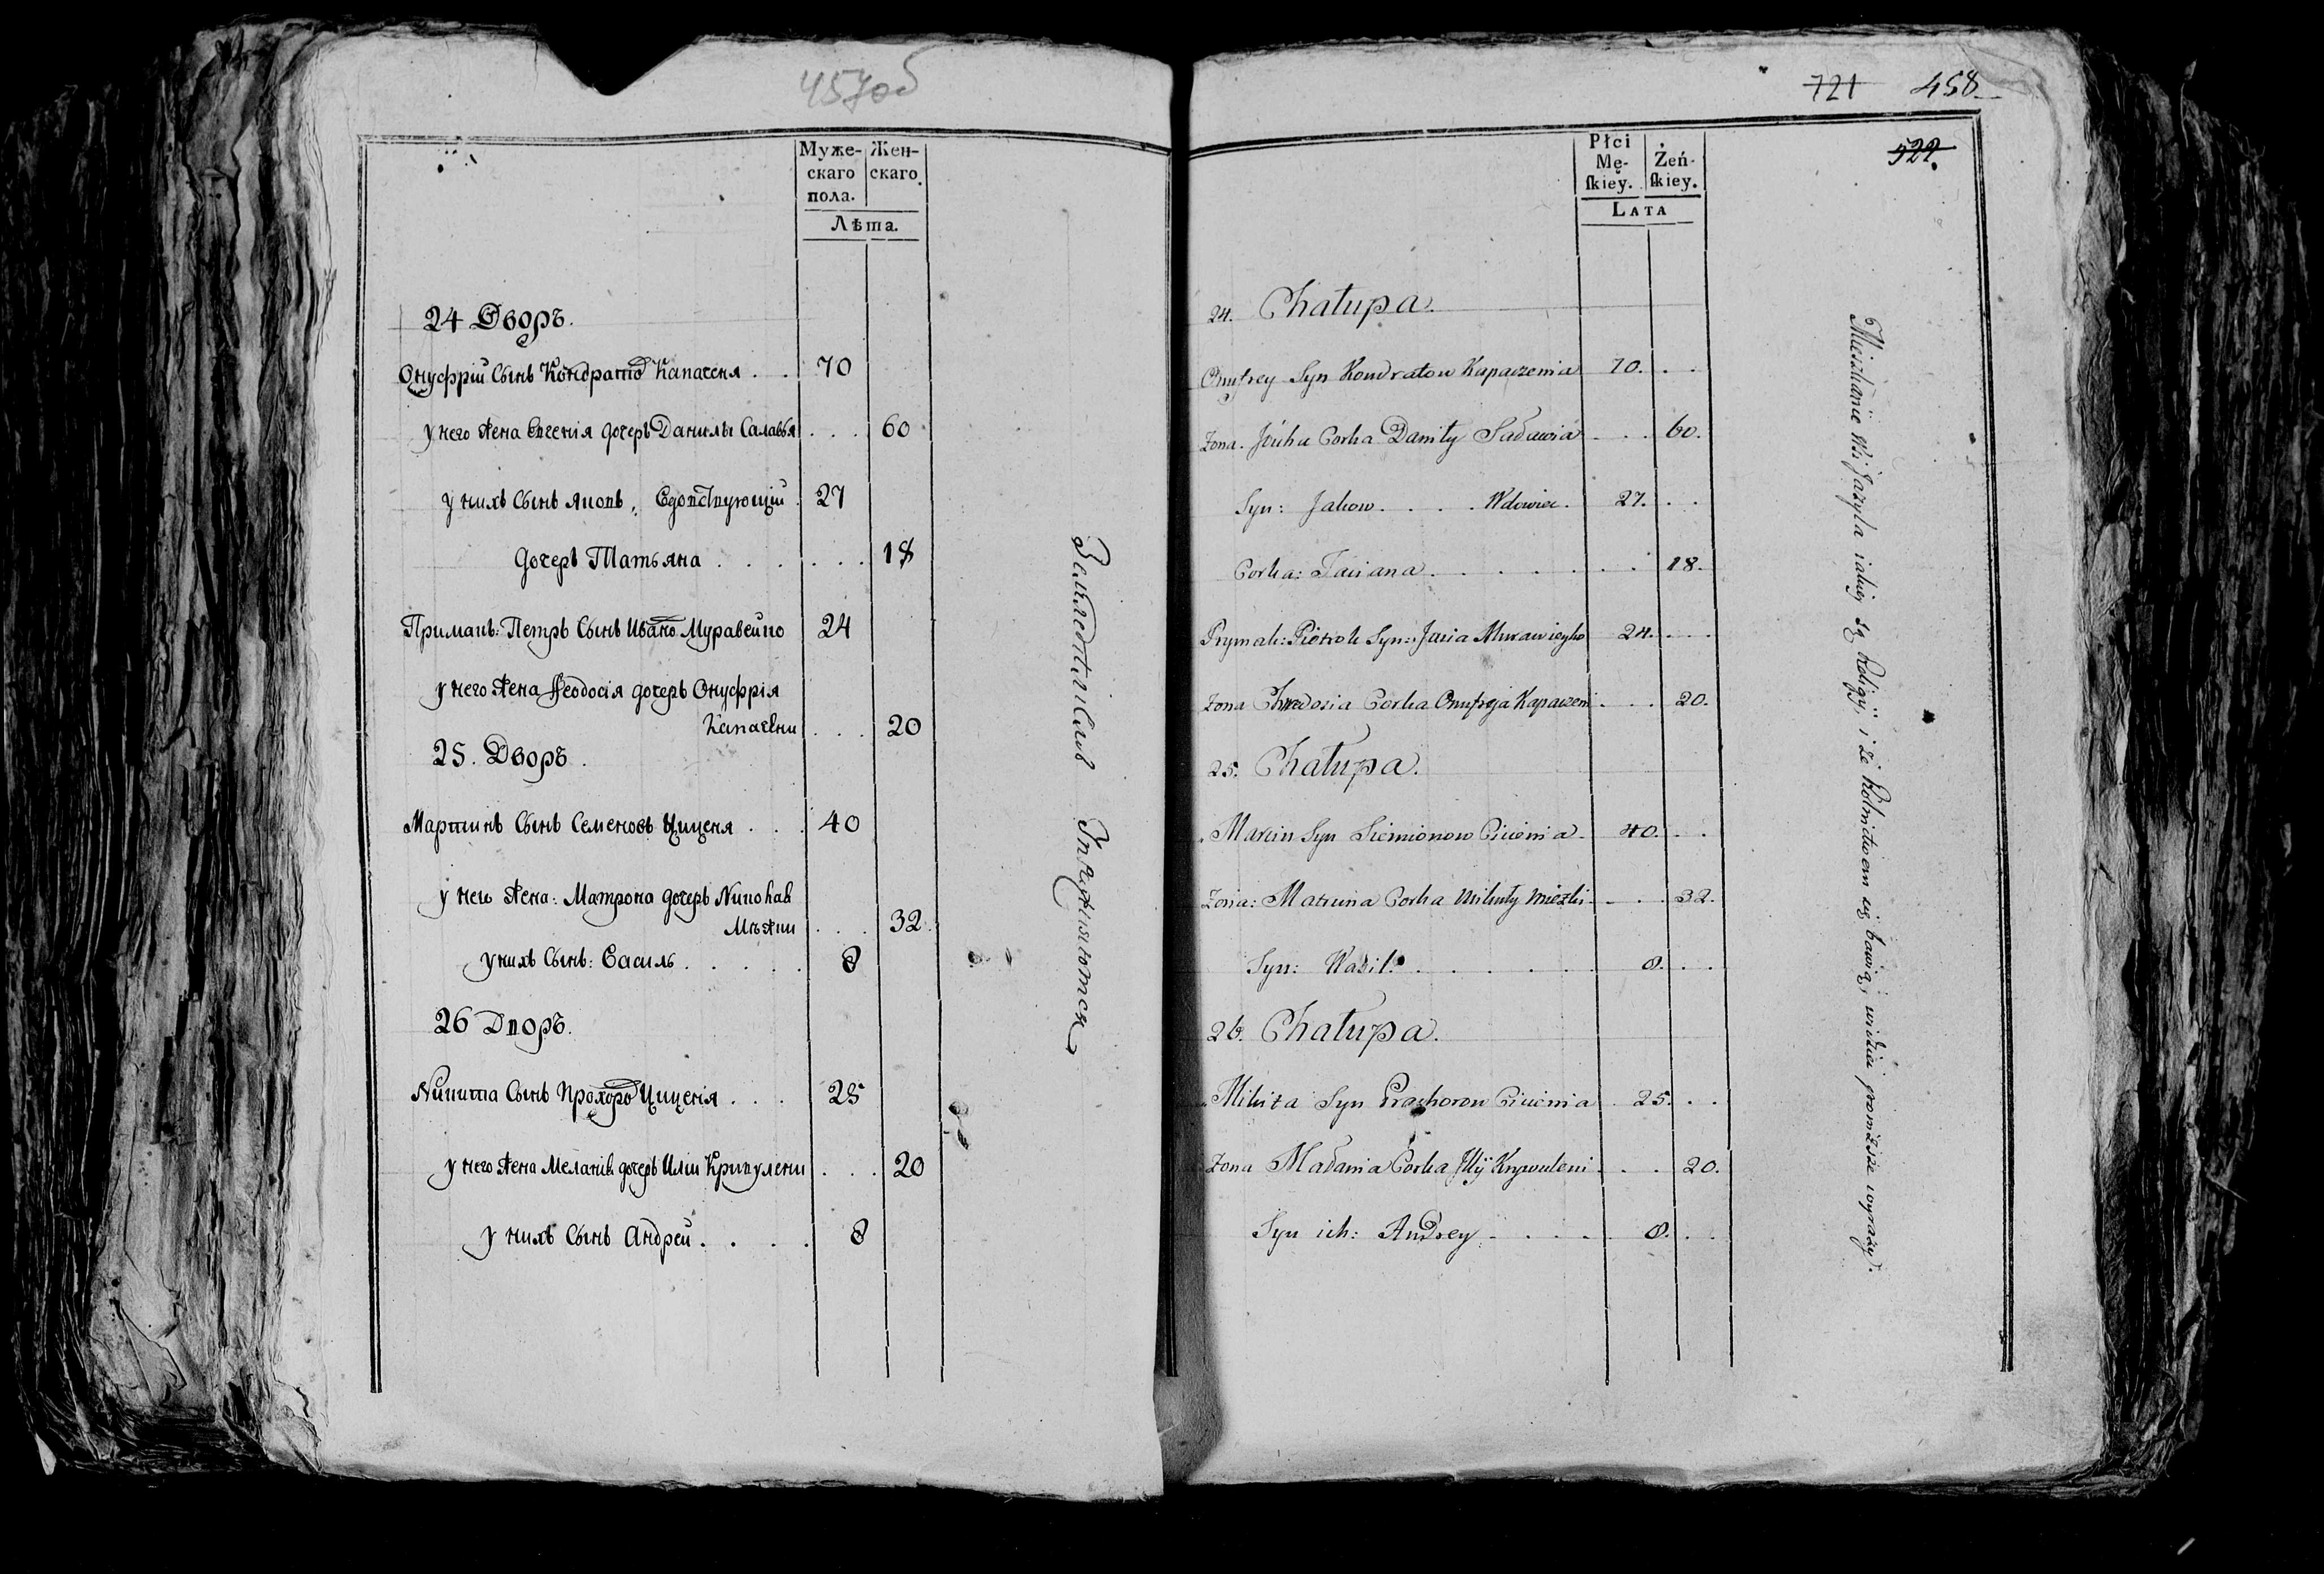 457об
Муже- Жен-
скаго скаго.
пола.
Лѣта.
24 Дворъ.
Онуфрій Сынъ Кондратов Капаченя . . 70
у него жена Евгенія дочерь Данилы Салавья . . . 60
у нихъ Сынъ Яковъ, Вдовствующій . 27
дочерь Татьяна . . . . . . 18
Примакъ: Петръ Сынъ Ивано Муравейко 24
у него жена Феодосія дочерь Онуфрія
Капачени . . . 20
25. Дворъ.
Мартинъ Сынъ Семеновъ Циценя . . . 40
у него жена: Матрона дочерь
. . . 32
у нихъ Сынъ: Василь . . . . . 8
26 Дворъ.
Никита Сынъ Прохоров Циценія . . . 25
у него жена Меланія дочерь Иліи Кривулени . . . 20
у нихъ Сынъ Андрей . . . . 8
721 458
522.
Płci
Mę- Żeń-
skiey. skiey.
LATA
24. Chałupa.
Onufrey Syn Kondratow Kapaczenia 70. . .
Zona. Córka Daniły Saławia . . . 60.
Syn: Jakow . . . . Wdowiec. 27. . .
Corka: Taciana . . . . . . . 18.
Prymak: Piotrok Syn: Jasia Murawieyko 24. . . .
Zona Chwedosia Corka Onufreja Kapaczeni . . . 20.
25. Chałupa.
Marcin Syn Siemionow Cicienia . 40. . .
Zona: Matruna Corka Mikity . . . 32.
Syn: Wasil . . . . . . 8. . .
26. Chałupa.
Mikita Syn Prachorow Cicienia . 25. . .
Zona Małania Corka Illÿ Krywuleni . . . 20.
Syn ich: Andrey . . . . . 8. . .
Mieszkanie Wsi iakiey są Religij, i że Rolnictwem się bawią, widzieć poniższe wyrazy.